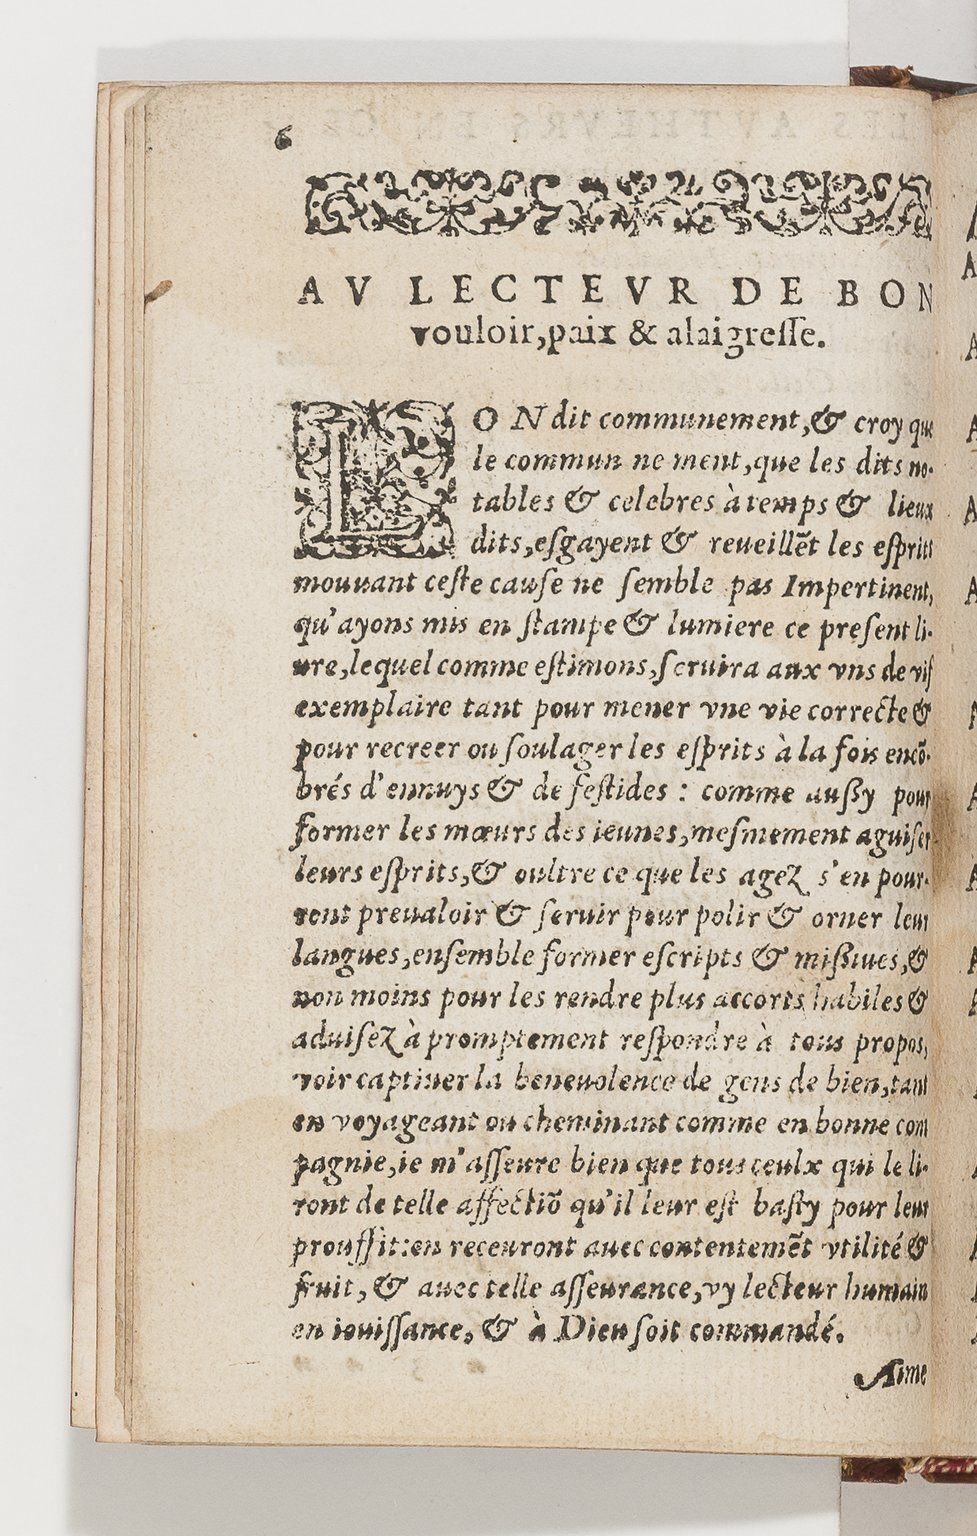 6
AV LECTEVR DE BON
vouloir, paix & alaigreſſe.
LON dit communement, & croy que
le commun ne ment, que les dits no-
tables & celebres à temps & lieux
dits, eſgayent & reueillẽt les eſprits
mouuant ceſte cauſe ne ſemble pas Impertinent,
qu'ayons mis en ſtampe & lumiere ce preſent li-
ure, lequel comme eſtimons, ſeruira aux vns de vif
exemplaire tant pour mener vne vie correcte &
pour recreer ou ſoulager les eſprits à la fois encõ-
brés d'ennuys & de feſtides : comme auſſy pour
former les mœurs des ieunes, meſmement aguiſer
leurs eſprits, & oultre ce que les agez s'en pour-
ront preualoir & ſeruir pour polir & orner leur
langues, enſemble former eſcripts & miſſiues, &
non moins pour les rendre plus accorts habiles &
aduiſez à promptement reſpondre à tous propos,
voir captiuer la beneuolence de gens de bien, tant
en voyageant ou cheminant comme en bonne com
pagnie, ie m'aſſeure bien que tous ceulx qui le li-
ront de telle affectiõ qu'il leur eſt baſty pour leur
prouffit: en receuront auec contentemẽt vtilité &
fruit, & auec telle aſſeurance, vy lecteur humain
en iouiſſance, & à Dieu ſoit commandé.
Aime